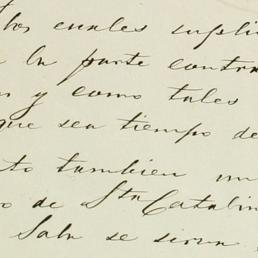 los cuales supli
la parte contra
y como tales
que sea tiempo de
to tambien un
o de Sta Catalin
Sala se sirva